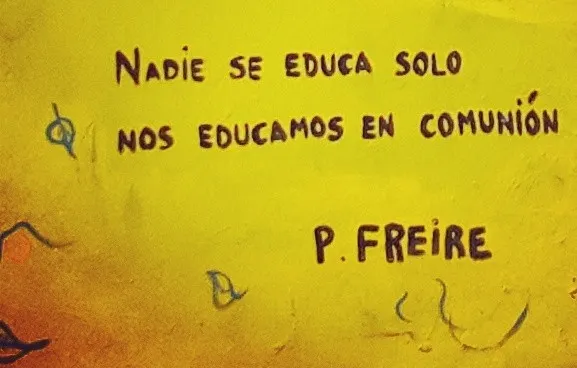 NADIE SE EDUCA SOLO
NOS EDUCAMOS EN COMUNIÓN
P. FREIRE